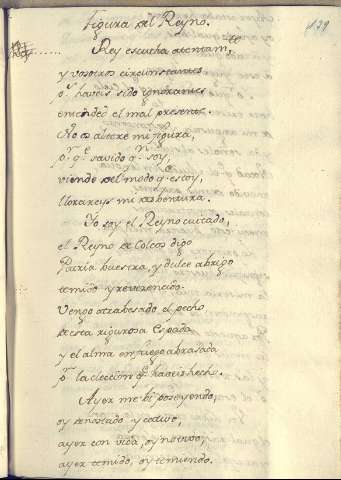 Figura del Reyno.
129
Rey escucha atentam.te
y vosotros circunstantes
p.r haveis sido ygnorantes
entended el mal presente.
No os altere mi figura,
p.r q.e savido q.n soy,
viendo del modo q.e estoy,
llorareys mi desbentura.
Yo soy el Reyno cuitado,
el Reyno de Colcos digo
Patria buestra, y dulce abrigo
temido y reverenciado.
Vengo atrabesado el pecho
de esta rigurosa Espada
y el alma en fuego abrasada
p.r la eleccion q.e haveis hecho.
Ayer me bi poseyendo,
oy denostado y cativo,
ayer con vida, oy no vivo,
ayer temido, oy temiendo.